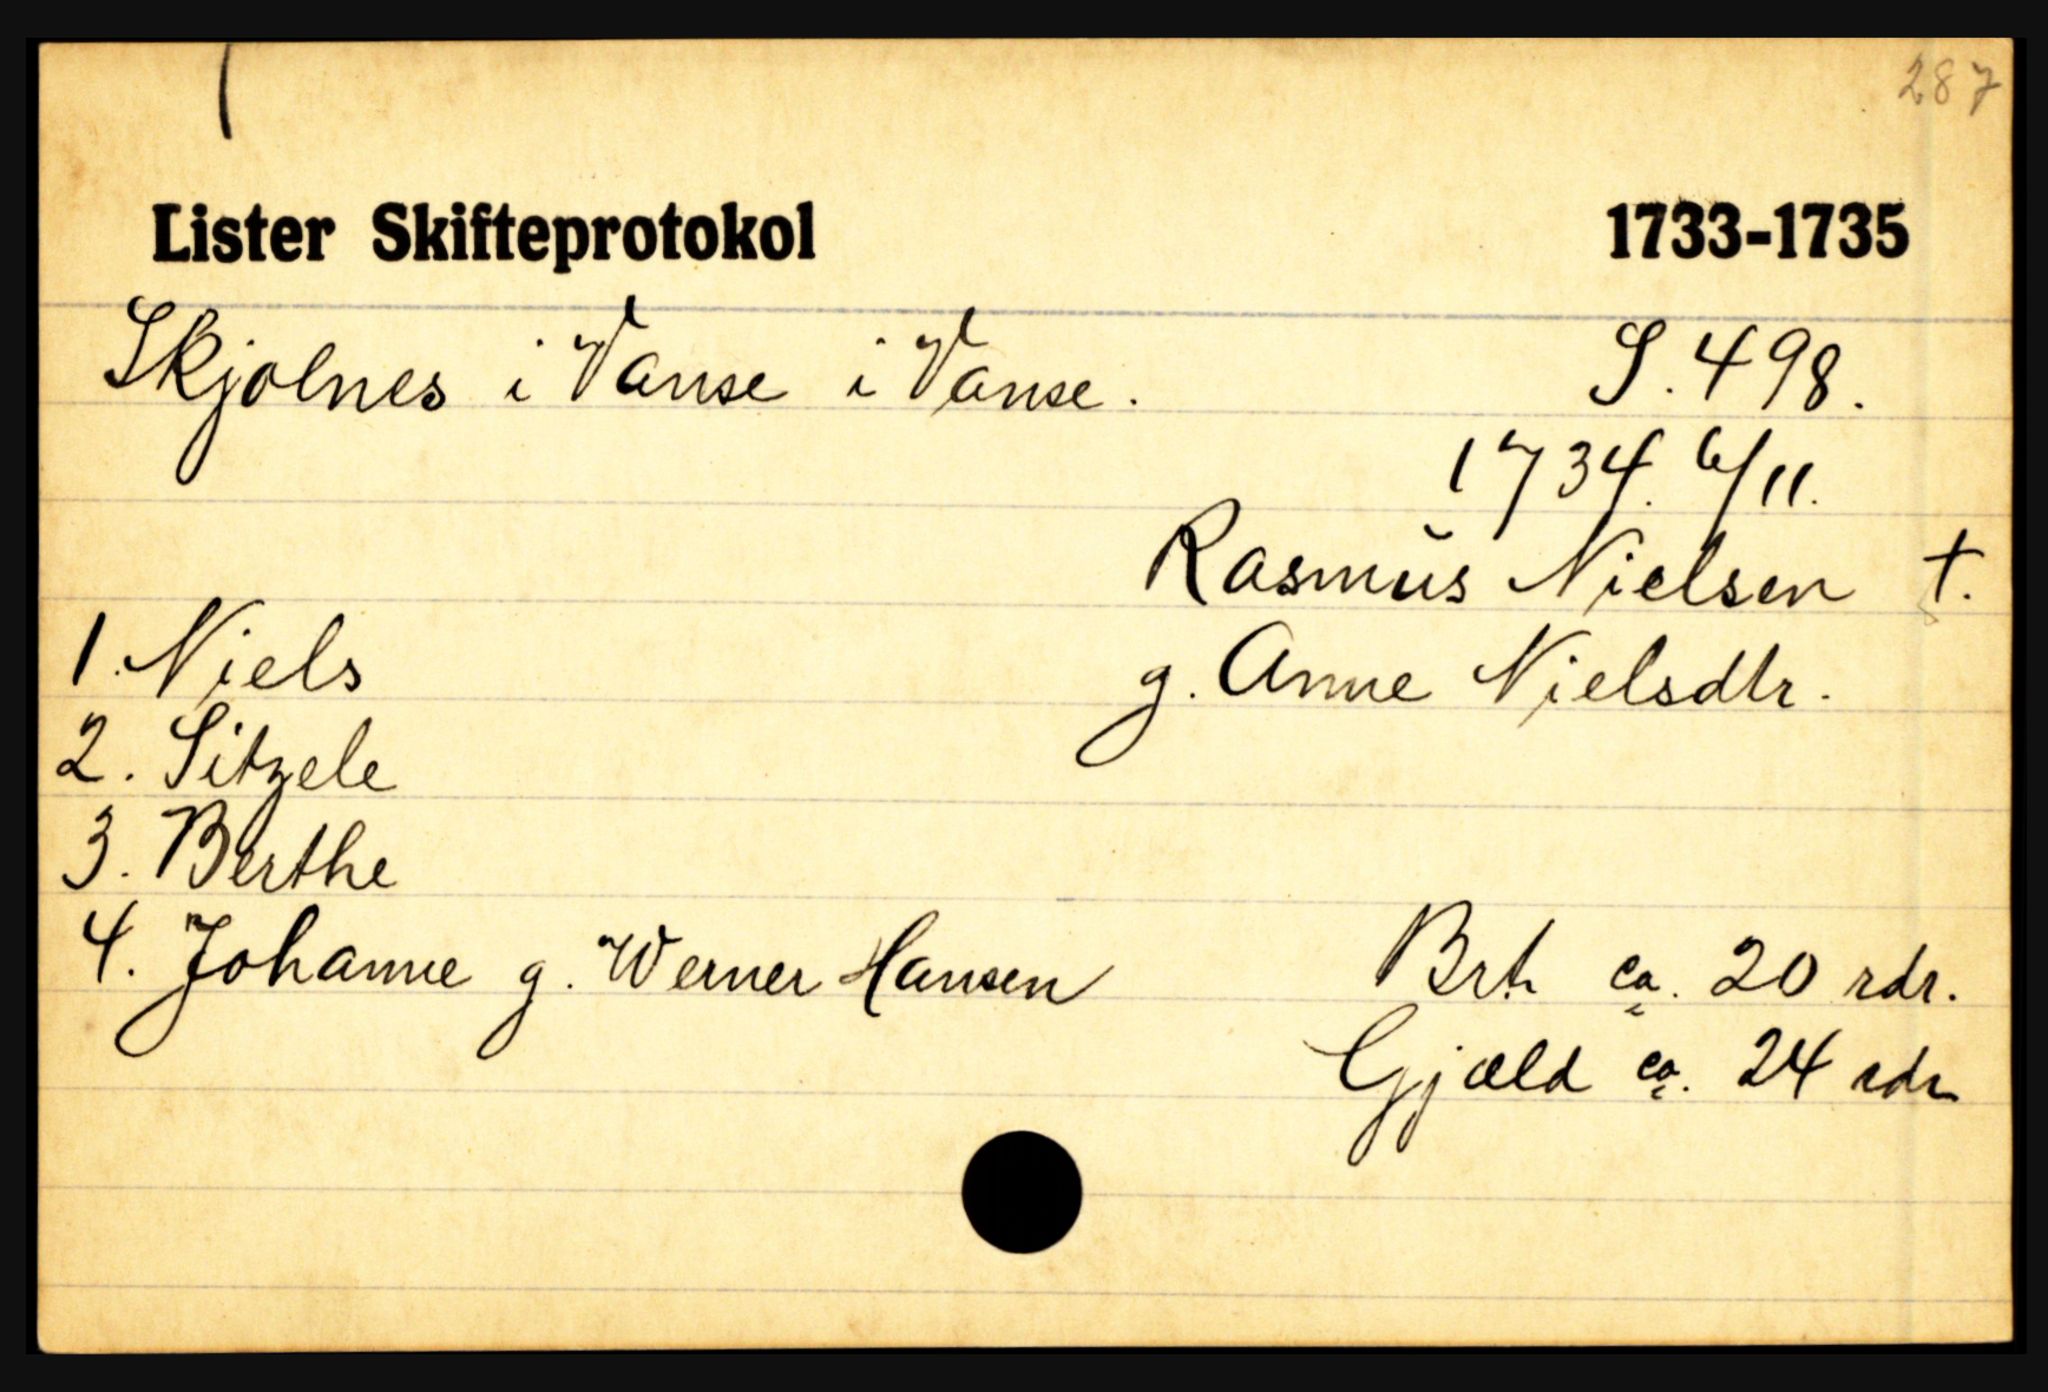 287
Lister Skifteprotokol 1733-1735
Skjolnes i Vanse i Vanse. S. 498.
1734. 6/11.
Rasmus Nielsen †.
1. Niels g. Anne Nielsdtr.
2. Sitzele
3. Berthe
4. Johanne g. Werner Hansen Brt. ca. 20 rdr.
Gjæld ca. 24 rdr